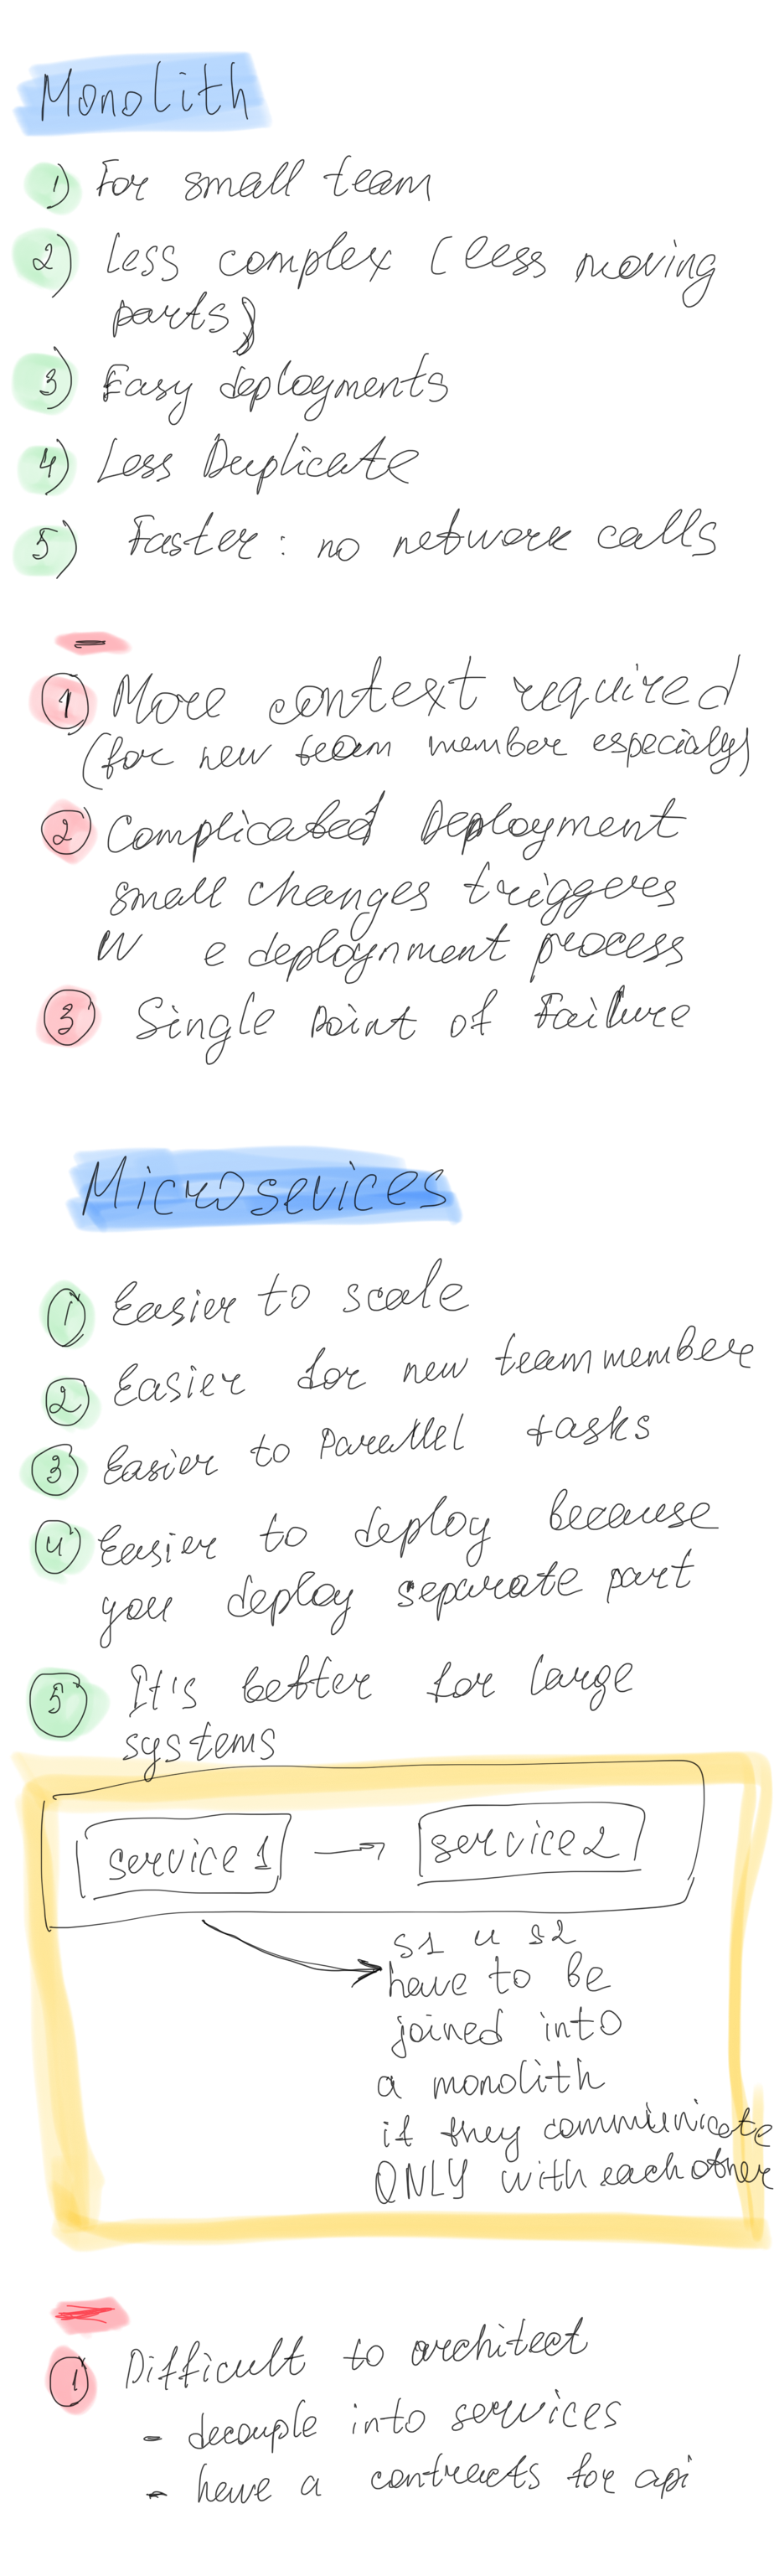 Monolith
1) For small team
2) Less complex (less moving
parts)
3) Easy deployments
4) Less Duplicate
5) Faster: no network calls
-
1 More context required
(for new team member especialy)
2 Complicated Deployment
small changes triggeres
deploynment process
3 Single Point of Failure
Microsevices
1 Easier to scale
2 Easier for new team member
3 Easier to Parallel tasks
4 Easier to deploy because
you deploy separate part
5 It's better for large
systems
service 1 → service 2
S1 u S2
have to be
joined into
a monolith
if they communicate
ONLY with each other
-
1 Difficult to architect
- decouple into services
- have a contracts for api